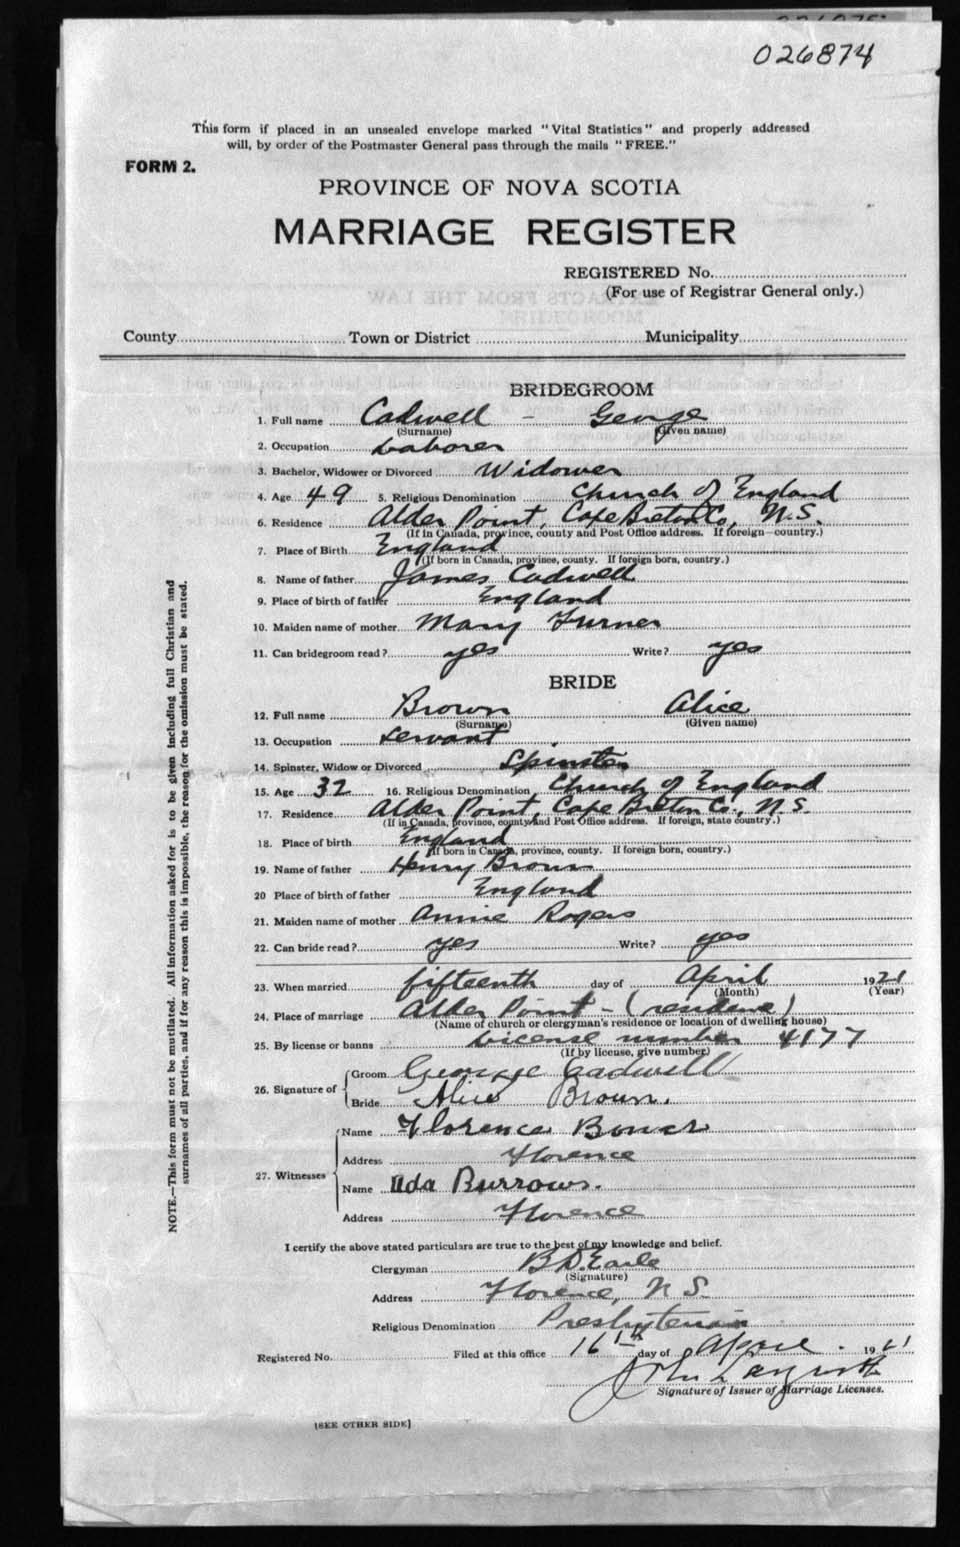 026874
This form if placed in an unsealed envelope marked "Vital Statistics" and properly addressed
will, by order of the Postmaster General pass through the mails "FREE."
FORM 2.
PROVINCE OF NOVA SCOTIA
MARRIAGE REGISTER
REGISTERED No.
(For use of Registrar General only.)
County Town or District Municipality
BRIDEGROOM
1. Full name Cadwell - George
(Surname) (Given name)
2. Occupation Laborer
3. Bachelor, Widower or Divorced Widower
4. Age 49 5. Religious Denomination Church of England
6. Residence Alder Point, Cape Breton Co., N.S.
(If in Canada, province, county and Post Office address. If foreign—country.)
7. Place of Birth England
(If born in Canada, province, county. If foreign born, country.)
8. Name of father James Cadwell
9. Place of birth of father England
10. Maiden name of mother Mary Turner
11. Can bridegroom read? yes Write? yes
BRIDE
12. Full name Brown Alice
(Surname) (Given name)
13. Occupation Servant
14. Spinster, Widow or Divorced Spinster
15. Age 32 16. Religious Denomination Church of England
17. Residence Alder Point, Cape Breton Co., N.S.
(If in Canada, province, county and Post Office address. If foreign, state country.)
18. Place of birth England
(If born in Canada, province, county. If foreign born, country.)
19. Name of father Henry Brown
20 Place of birth of father England
21. Maiden name of mother Annie Rogers
22. Can bride read? yes Write? yes
23. When married fifteenth day of April 1921
(Month) (Year)
24. Place of marriage Alder Point - (residence)
(Name of church or clergyman's residence or location of dwelling house)
25. By license or banns License number 4177
(If by license, give number)
26. Signature of Groom George Cadwell
Bride Alice Brown.
27. Witnesses Name Florence Bower
Address Florence
Name Ada Burrows.
Address Florence
I certify the above stated particulars are true to the best of my knowledge and belief.
Clergyman B.D. Earle
(Signature)
Address Florence, N S.
Religious Denomination Presbyterian
Registered No. Filed at this office 16th day of April 1921
John
Signature of Issuer of Marriage Licenses.
[SEE OTHER SIDE]
NOTE.—This form must not be mutilated. All information asked for is to be given including full Christian and
surnames of all parties, and if for any reason this is impossible, the reason for the omission must be stated.